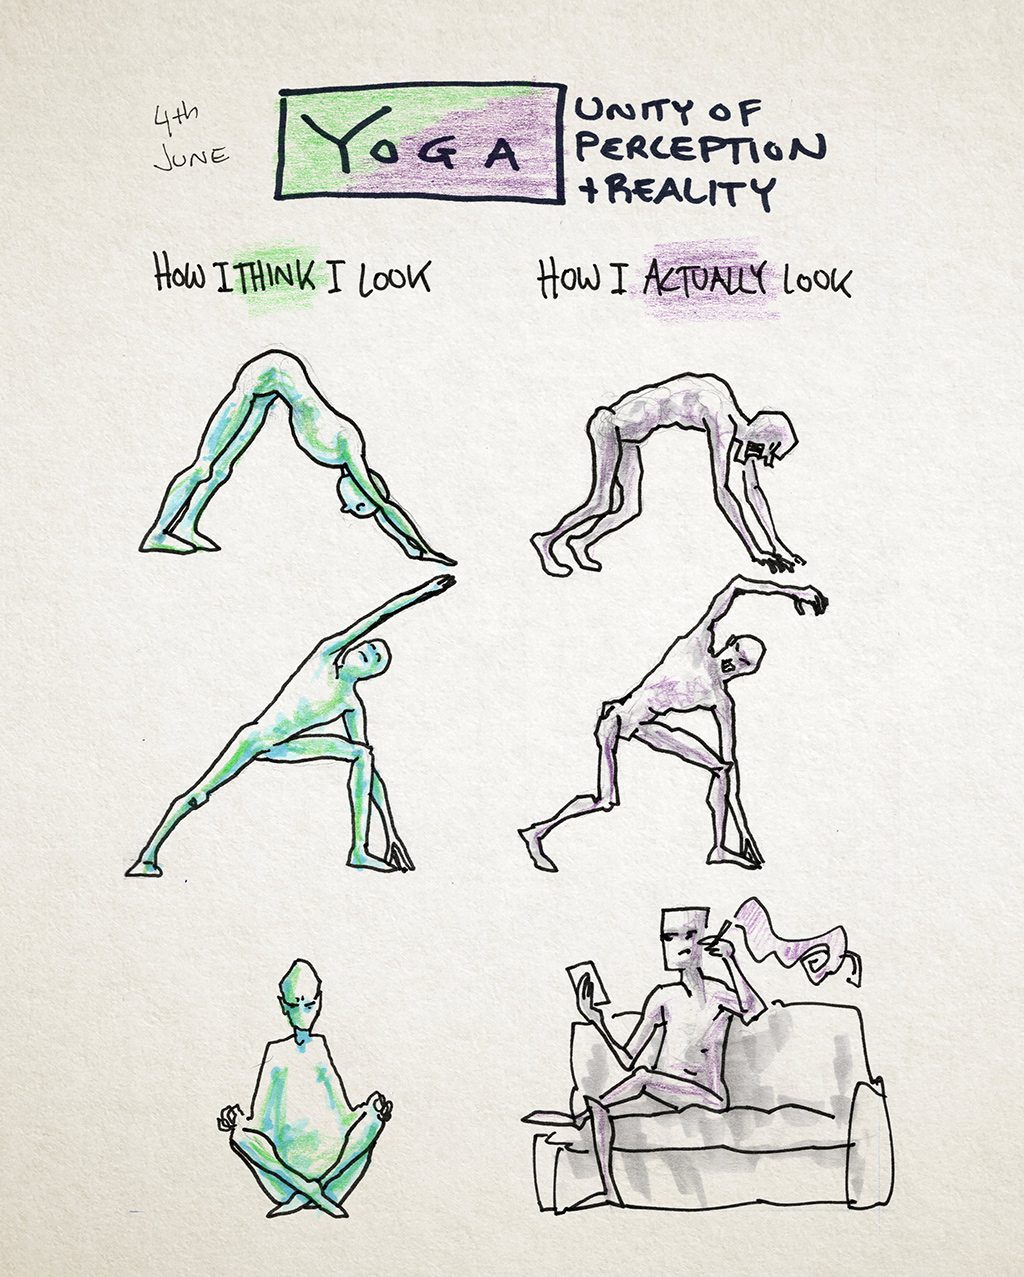 4th
JUNE
YOGA
UNITY OF
PERCEPTION
+REALITY
HOW I THINK I LOOK
HOW I ACTUALLY LOOK